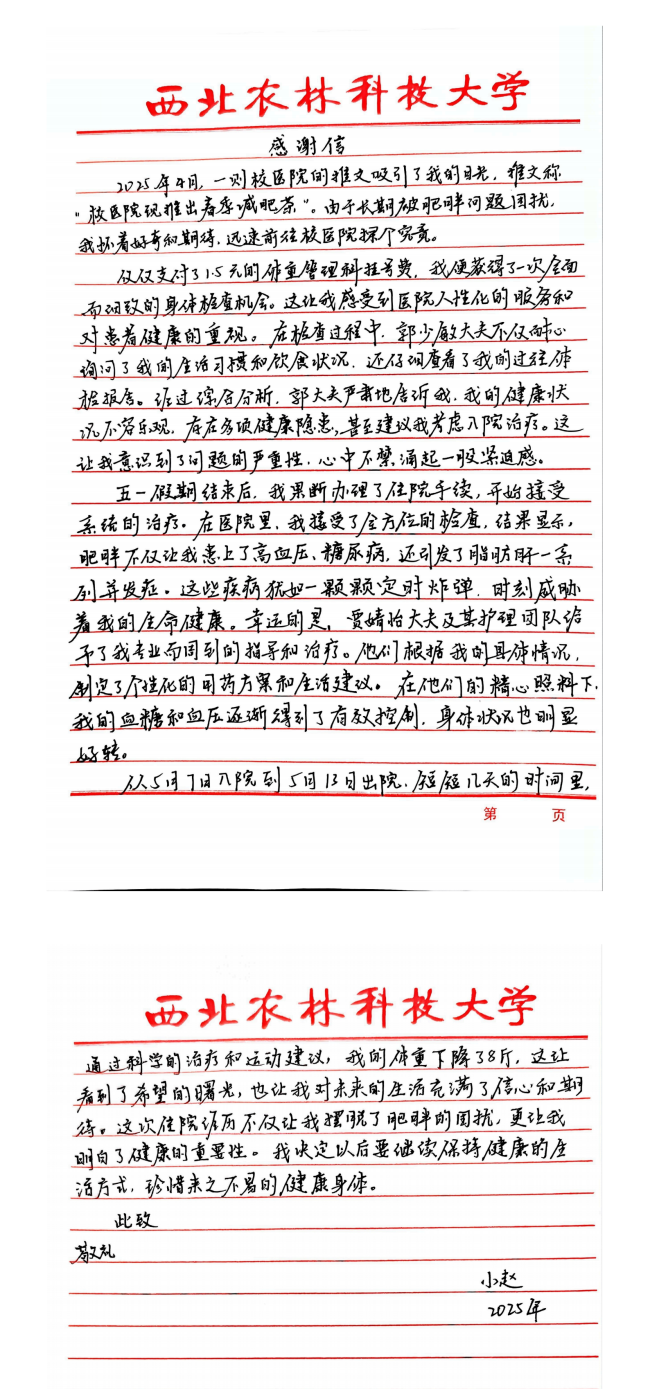 西北农林科技大学
感谢信
2025年4月，一则校医院的推文吸引了我的目光，推文称
“校医院现推出春季减肥茶”。由于长期被肥胖问题困扰，
我怀着好奇和期待，迅速前往校医院探个究竟。
仅仅支付了1.5元的体重管理科挂号费，我便获得了一次全面
而细致的身体检查机会。这让我感受到医院人性化的服务和
对患者健康的重视。在检查过程中，郭少敏大夫不仅耐心
询问了我的生活习惯和饮食状况，还仔细查看了我的过往体
检报告。经过综合分析，郭大夫严肃地告诉我，我的健康状
况不容乐观，存在多项健康隐患，甚至建议我考虑入院治疗。这
让我意识到了问题的严重性，心中不禁涌起一股紧迫感。
五一假期结束后，我果断办理了住院手续，开始接受
系统的治疗。在医院里，我接受了全方位的检查，结果显示，
肥胖不仅让我患上了高血压、糖尿病，还引发了脂肪肝一系
列并发症。这些疾病犹如一颗颗定时炸弹，时刻威胁
着我的生命健康。幸运的是，贾婧怡大夫及其护理团队给
予了我专业而周到的指导和治疗。他们根据我的具体情况，
制定了个性化的用药方案和生活建议。在他们的精心照料下，
我的血糖和血压逐渐得到了有效控制，身体状况也明显
好转。
从5月7日入院到5月13日出院，短短几天的时间里，
第 页
西北农林科技大学
通过科学的治疗和运动建议，我的体重下降了8斤，这让
看到了希望的曙光，也让我对未来的生活充满了信心和期
待。这次住院经历不仅让我摆脱了肥胖的困扰，更让我
明白了健康的重要性。我决定以后要继续保持健康的生
活方式，珍惜来之不易的健康身体。
此致
敬礼
小赵
2025年